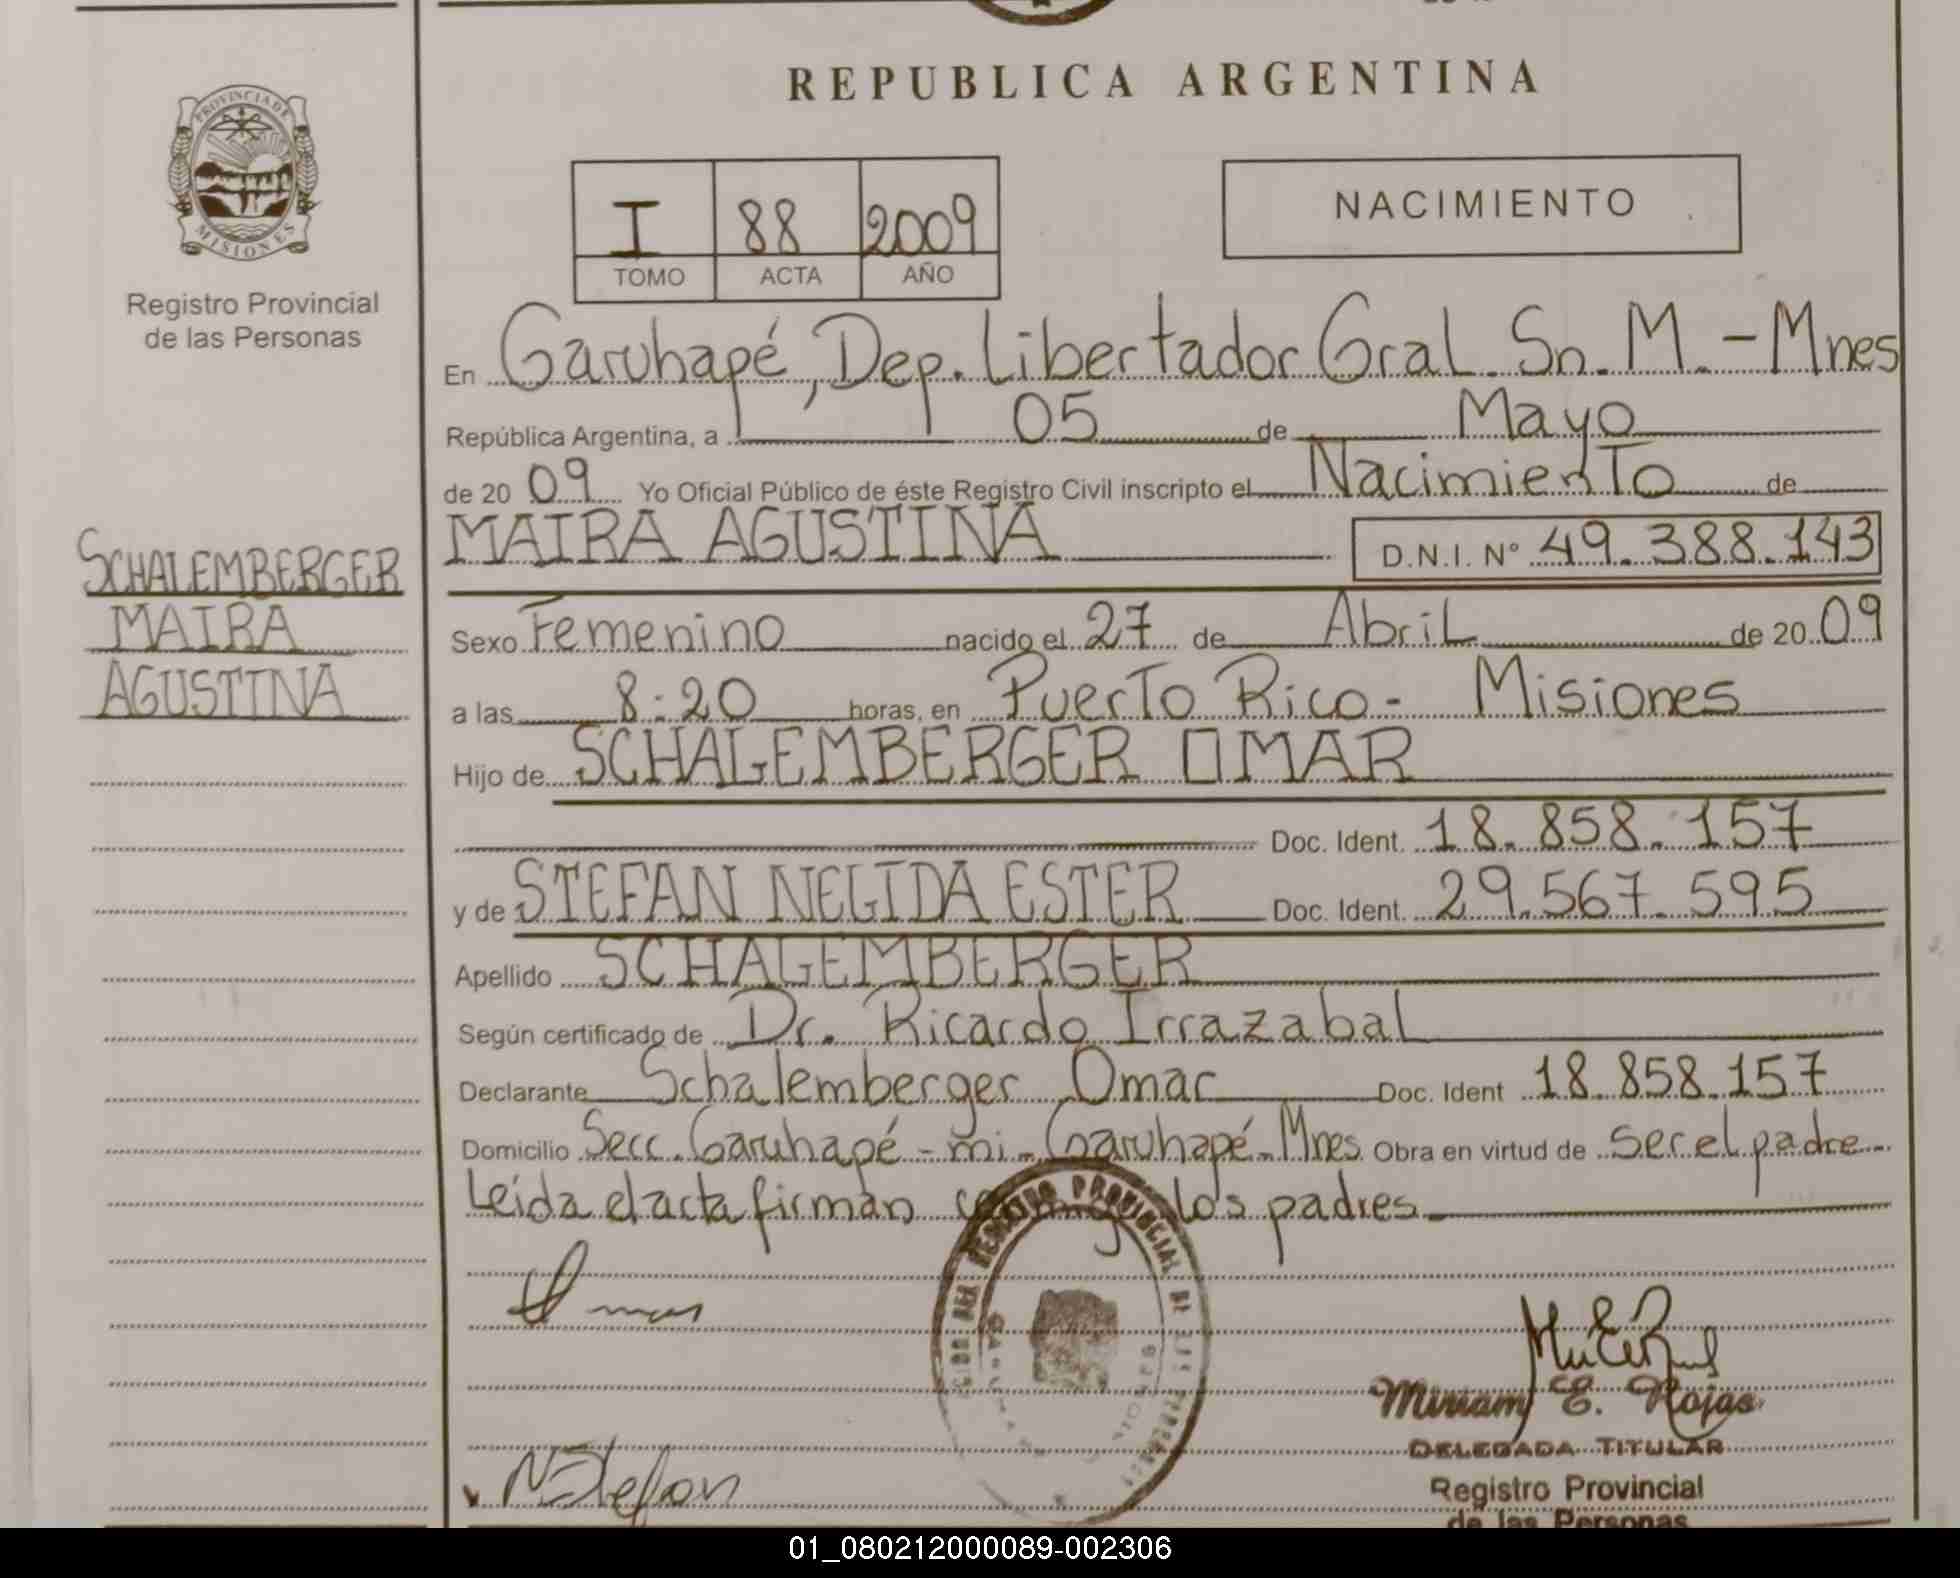 REPUBLICA ARGENTINA
PROVINCIA DE
MISIONES
Registro Provincial
de las Personas
I 88 2009
TOMO ACTA AÑO
NACIMIENTO
En Garuhapé, Dep. Libertador Gral. Sn. M. - Mnes
República Argentina, a 05 de Mayo
de 20 09 Yo Oficial Público de éste Registro Civil inscripto el Nacimiento de
MAIRA AGUSTINA D.N.I. N° 49.388.143
SCHALEMBERGER
MAIRA
AGUSTINA
Sexo Femenino nacido el 27 de Abril de 20 09
a las 8:20 horas, en Puerto Rico - Misiones
Hijo de SCHALEMBERGER OMAR
Doc. Ident. 18.858.157
y de STEFAN NELIDA ESTER Doc. Ident. 29.567.595
Apellido SCHALEMBERGER
Según certificado de Dr. Ricardo Irrazabal
Declarante Schalemberger Omar Doc. Ident 18.858.157
Domicilio Secc. Garuhapé - mi - Garuhapé - Mnes Obra en virtud de ser el padre
Leída el acta firman conmigo los padres.
REGISTRO PROVINCIAL DE LAS PERSONAS
Omar
Miriam E. Rojas
DELEGADA TITULAR
Registro Provincial
de las Personas
N Stefan
01_080212000089-002306